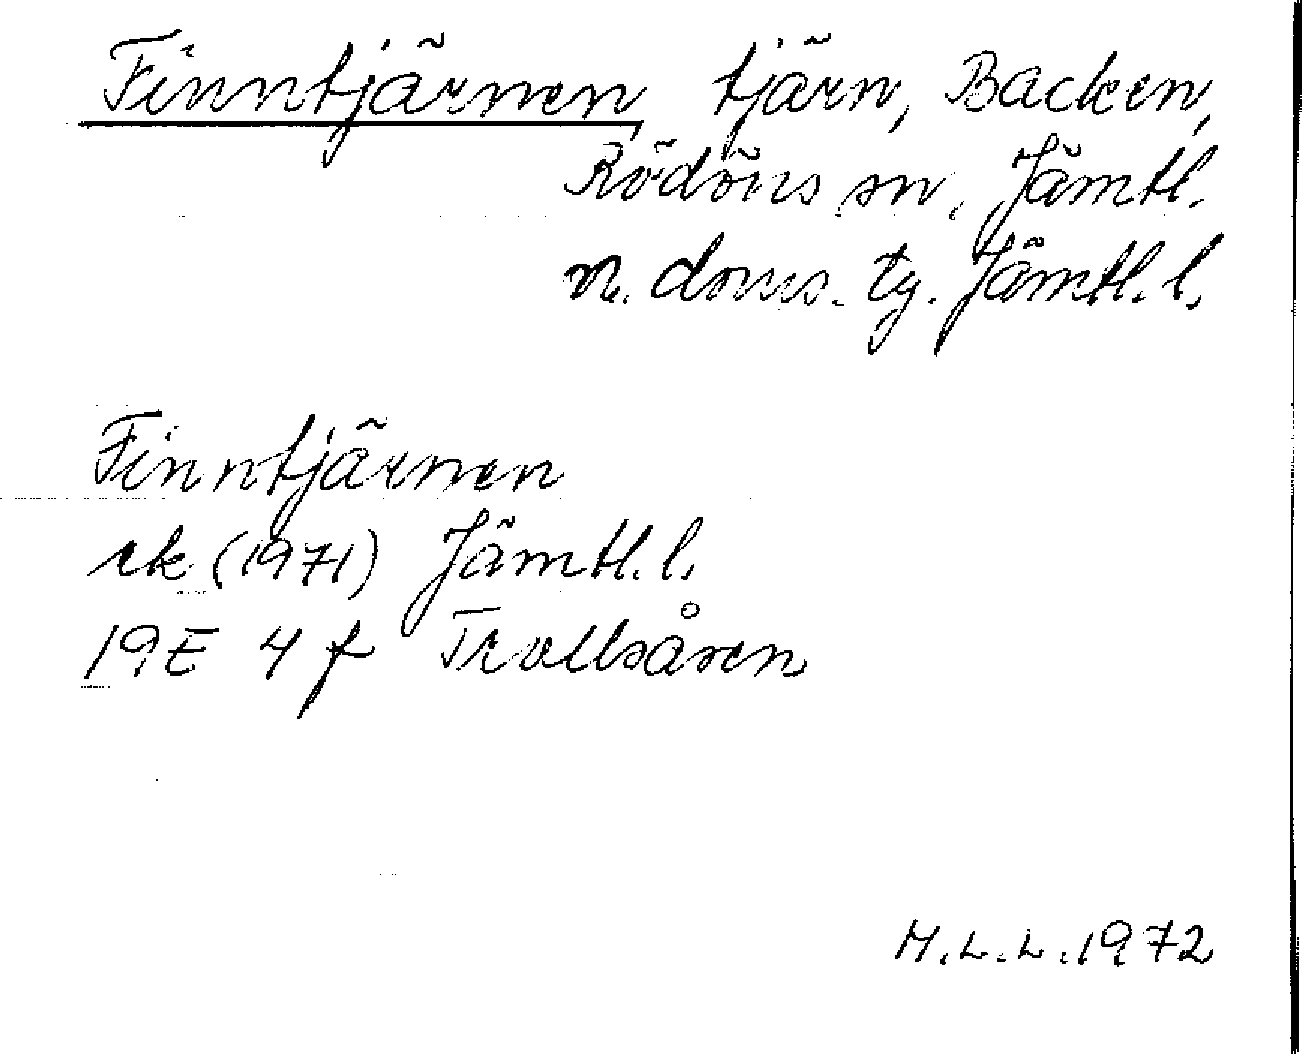 Finntjärnen, tjärn, Backen,
Rödöns sn, Jämtl.
n. doms. tg. Jämtl. l.
Finntjärnen
rk (1971) Jämtl. l.
19E 4 f Trollsåsen
M.L.L. 1972